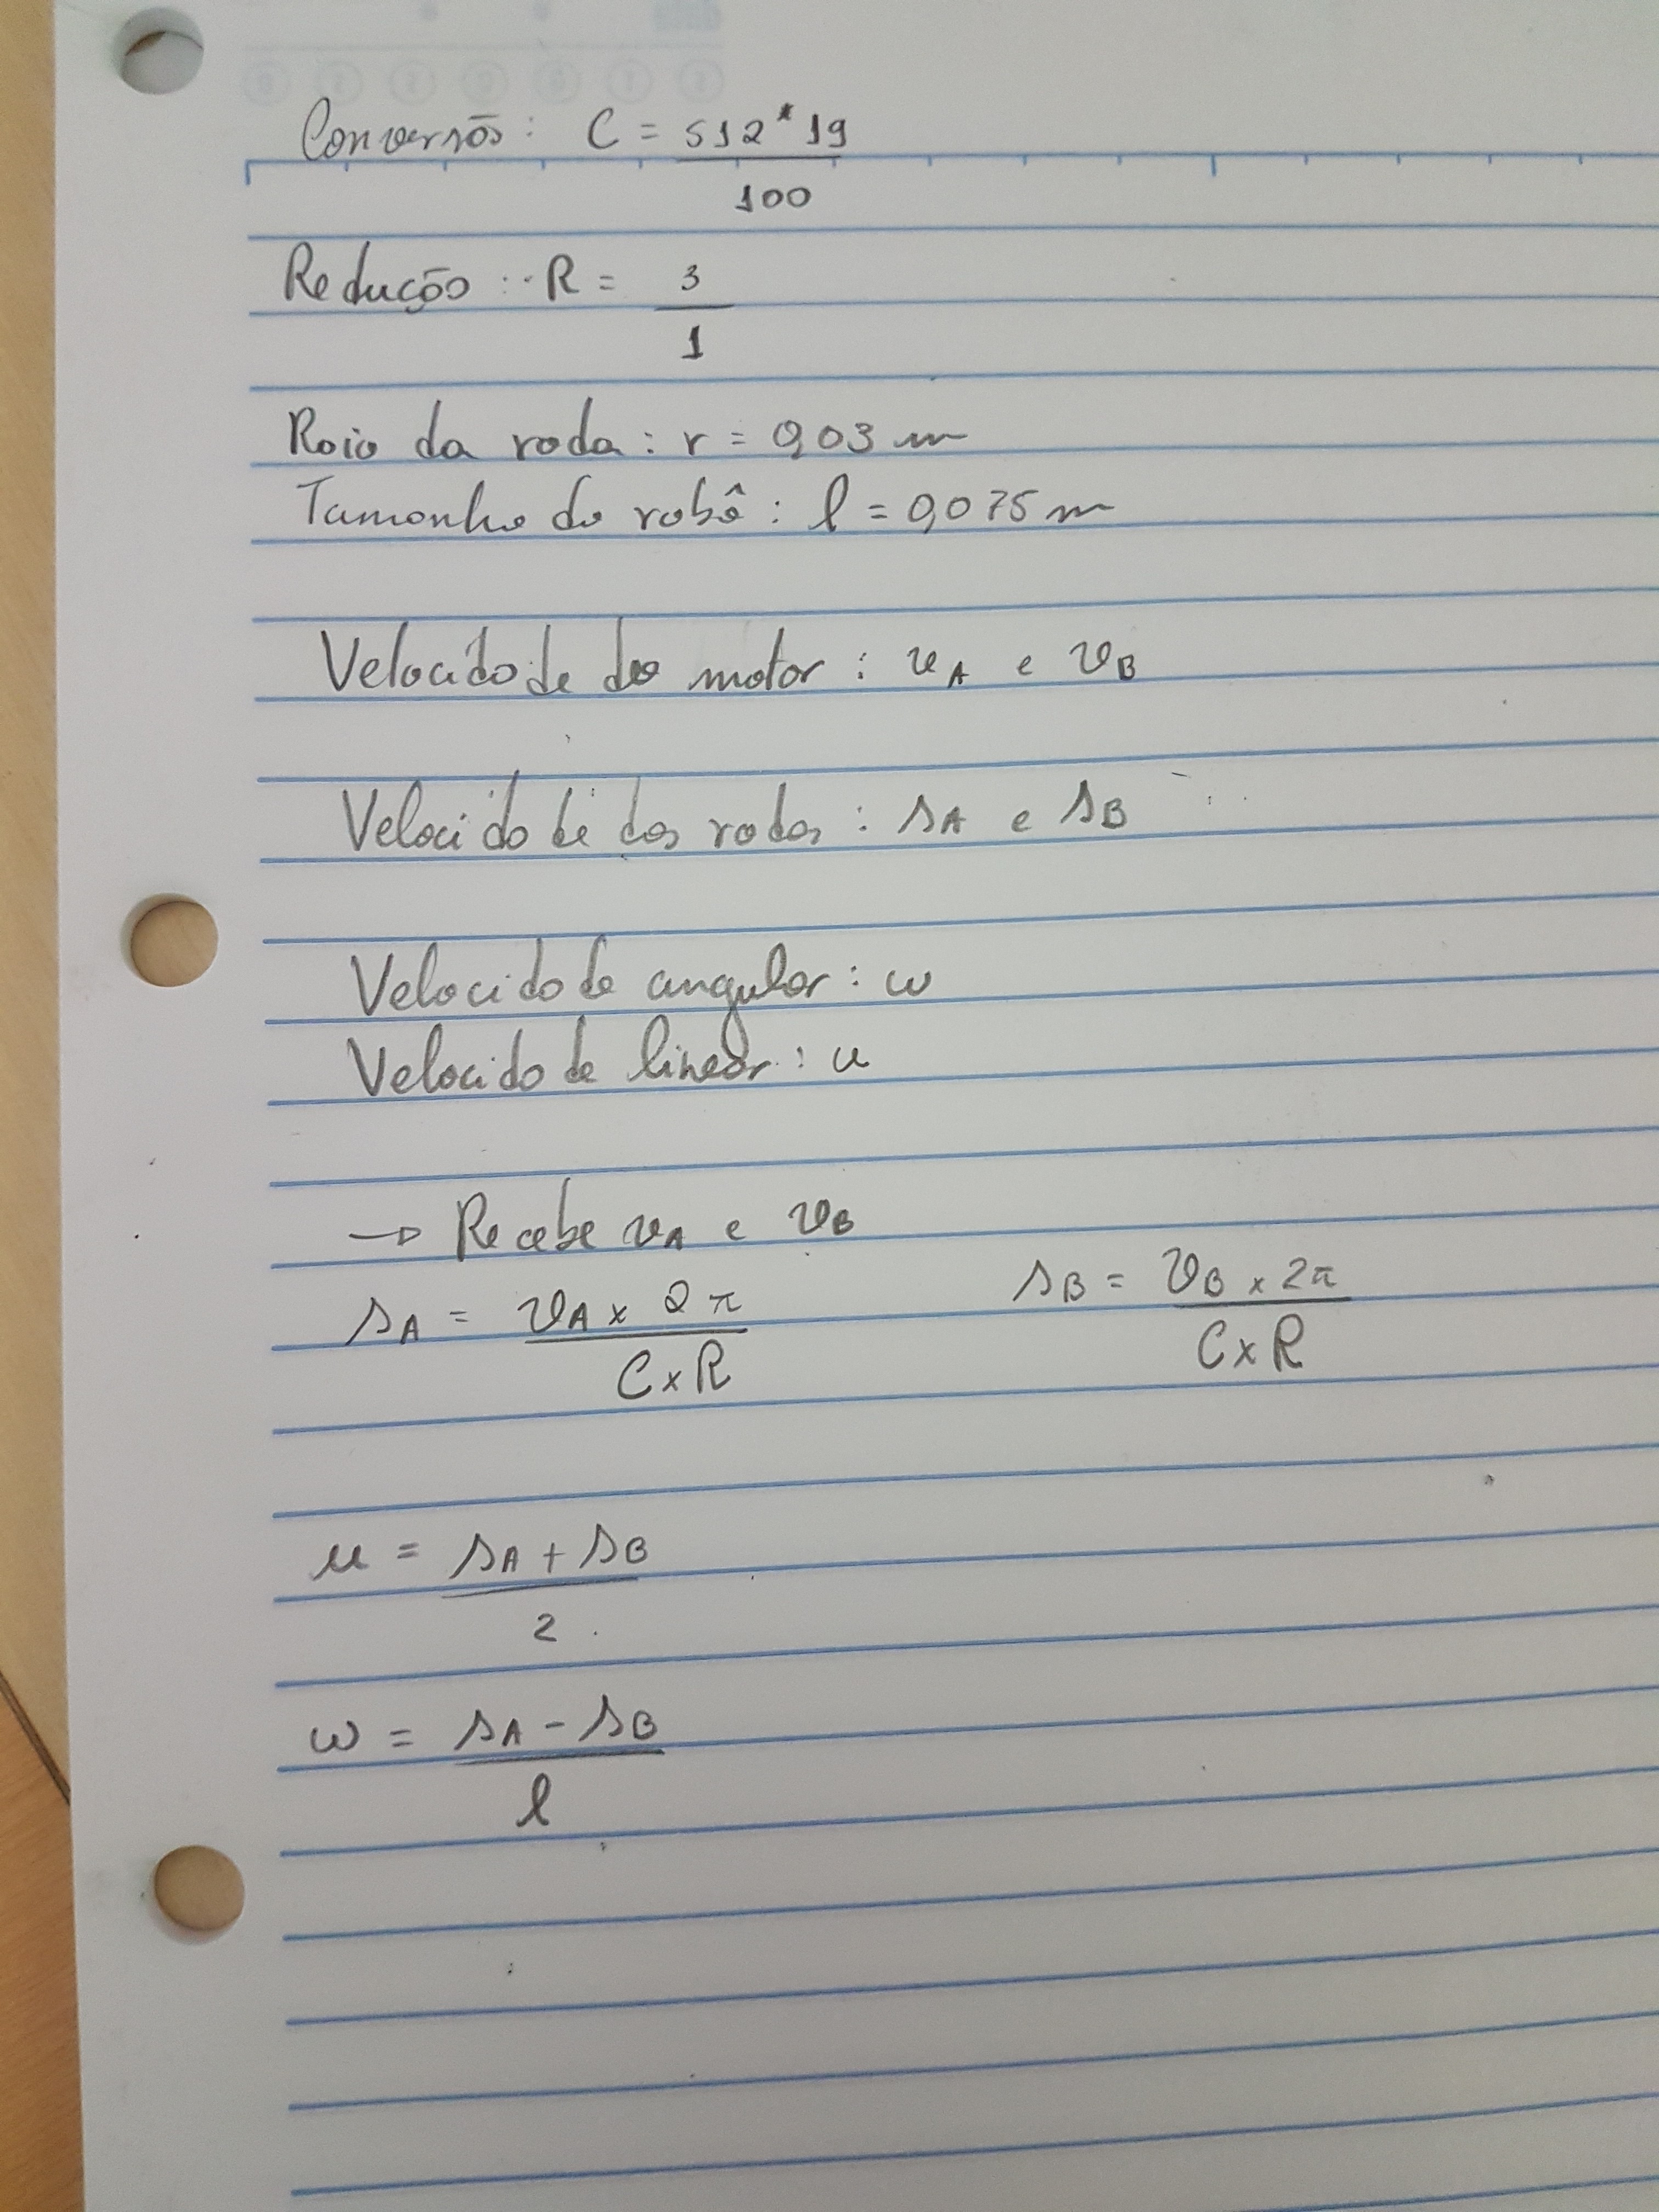 Conversão: C = 512*19
100
Redução: R = 3
1
Raio da roda: r = 0,03 m
Tamanho do robô: l = 0,075 m
Velocidade do motor: vA e vB
Velocidade das rodas: sA e sB
Velocidade angular: w
Velocidade linear: u
→ Recebe vA e vB
sA = vA x 2π
C x R
sB = vB x 2π
C x R
u = sA + sB
2
w = sA - sB
l